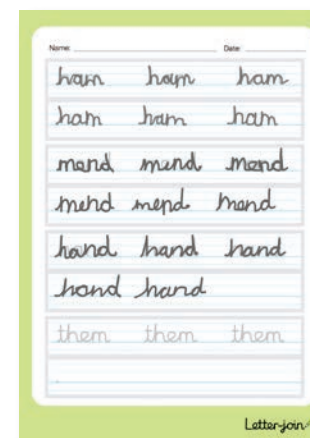 Name: Date:
ham ham ham
ham ham ham
mend mend mend
mend mend mend
hand hand hand
hand hand
them them them
Letter-join